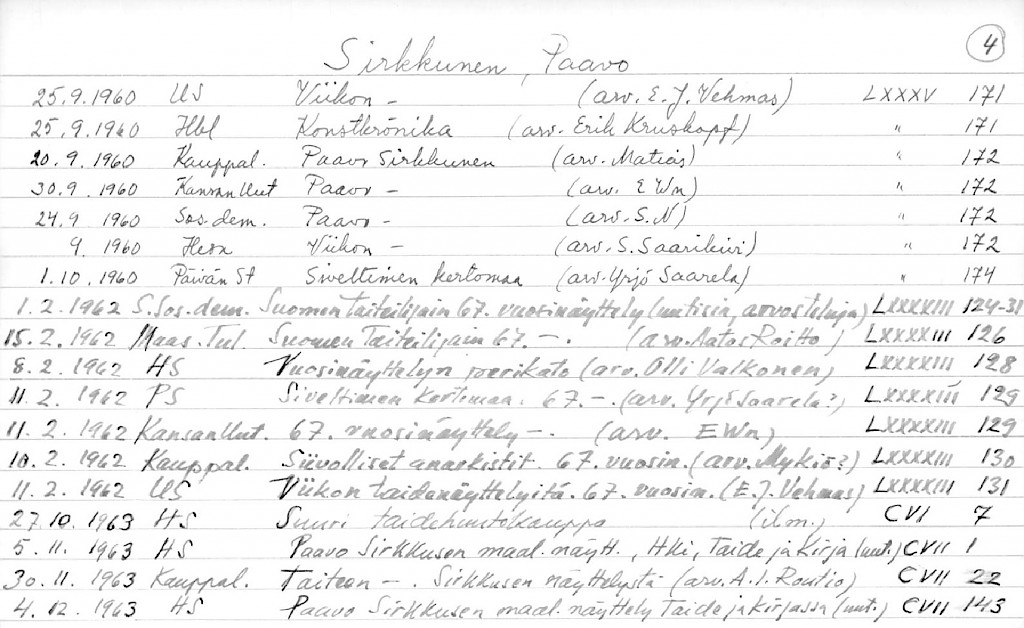 4
Sirkkunen, Paavo
25.9.1960 US Viikon – (arv. E.J. Vehmas) LXXXV 171
25.9.1960 Hbl Konstkrönika (arv. Erik Kruskopf) " 171
20.9.1960 Kauppal. Paavo Sirkkunen (arv. Matias) " 172
30.9.1960 Kansan Uut Paavo – (arv. E Wn) " 172
24.9 1960 Sos.dem. Paavo – (arv. S.N) " 172
9. 1960 Hesa Viikon – (arv. S. Saarikivi) " 172
1.10.1960 Päivän St Siveltimen kertomaa (arv. Yrjö Saarela) " 174
1.2.1962 S.Sos.dem. Suomen taiteilijain 67. vuosinäyttely (uutisia, arvosteluja) LXXXXIII 124-31
15.2.1962 Maas.Tul. Suomen Taiteilijain 67. –. (arv. Roitto) LXXXXIII 126
8.2.1962 HS Vuosinäyttelyn (arv. Olli Valkonen) LXXXXIII 128
11.2.1962 PS Siveltimen kertomaa. 67. –. (arv. Yrjö Saarela?) LXXXXIII 129
11.2.1962 Kansan Uut. 67. vuosinäyttely –. (arv. EWn) LXXXXIII 129
10.2.1962 Kauppal. Siivolliset anarkistit. 67. vuosin. (arv. Mykiö?) LXXXXIII 130
11.2.1962 US Viikon taidenäyttelyitä. 67. vuosin. (E.J. Vehmas) LXXXXIII 131
27.10.1963 HS Suuri taidehuutokauppa (ilm.) CVI 7
5.11.1963 HS Paavo Sirkkusen maal.näytt., Hki, Taide ja Kirja (uut.) CVII 1
30.11.1963 Kauppal. Taiteen –. Sirkkusen näyttelystä (arv. A.I. Routio) CVII 22
4.12.1963 HS Paavo Sirkkusen maal.näyttely Taide ja Kirjassa (uut.) CVII 143